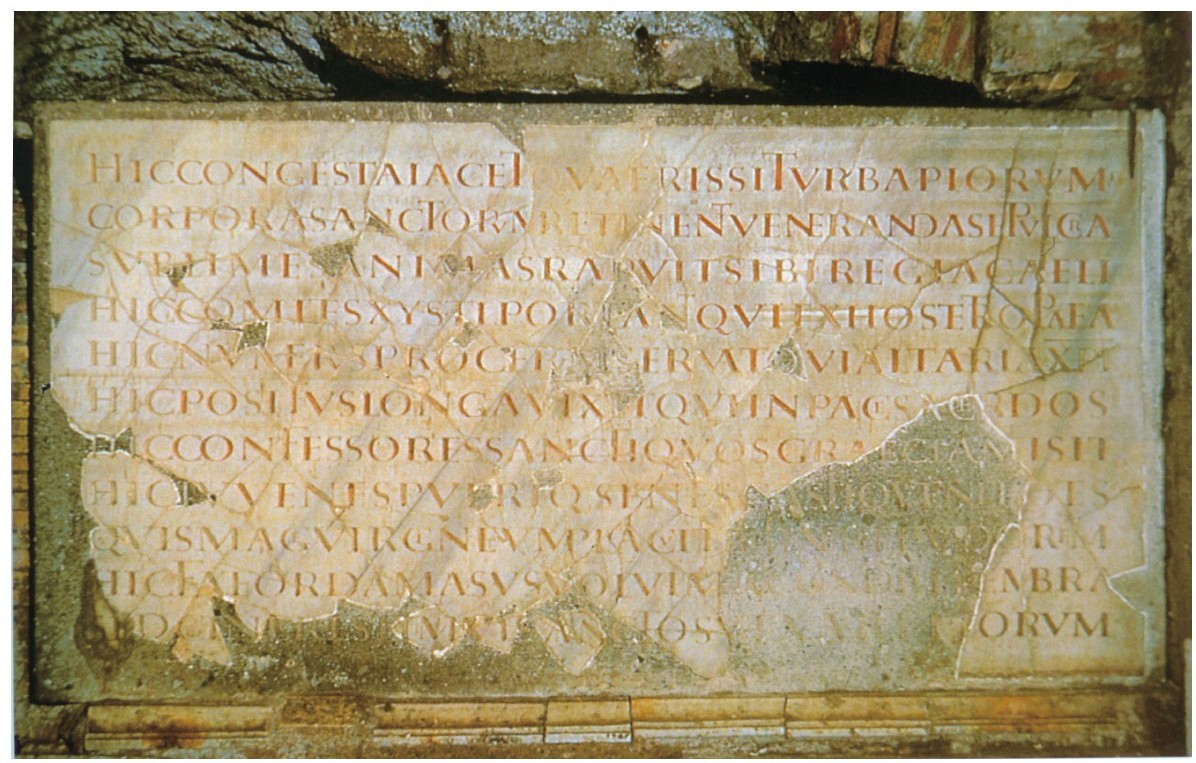 HIC CONGESTA IACET QVAERIS SI TVRBA PIORVM
CORPORA SANCTORVM RETINENT VENERANDA SEPVLCRA
SVBLIMES ANIMAS RAPVIT SIBI REGIA CAELI
HIC COMITES XYSTI PORTANT QVI EX HOSTE TROPAEA
HIC NVMERVS PROCERVM SERVAT QVI ALTARIA XPI
HIC POSITVS LONGA VIXIT QVI IN PACE SACERDOS
HIC CONFESSORES SANCTI QVOS GRAECIA MISIT
HIC IVVENES PVERIQ SENES CASTIQVE NEPOTES
QVIS MAG VIRGINEVM PLACVIT RETINERE PVDOREM
HIC FATEOR DAMASVS VOLVI MEA CONDERE MEMBRA
SED CINERES TIMVI SANCTOS VEXARE PIORVM